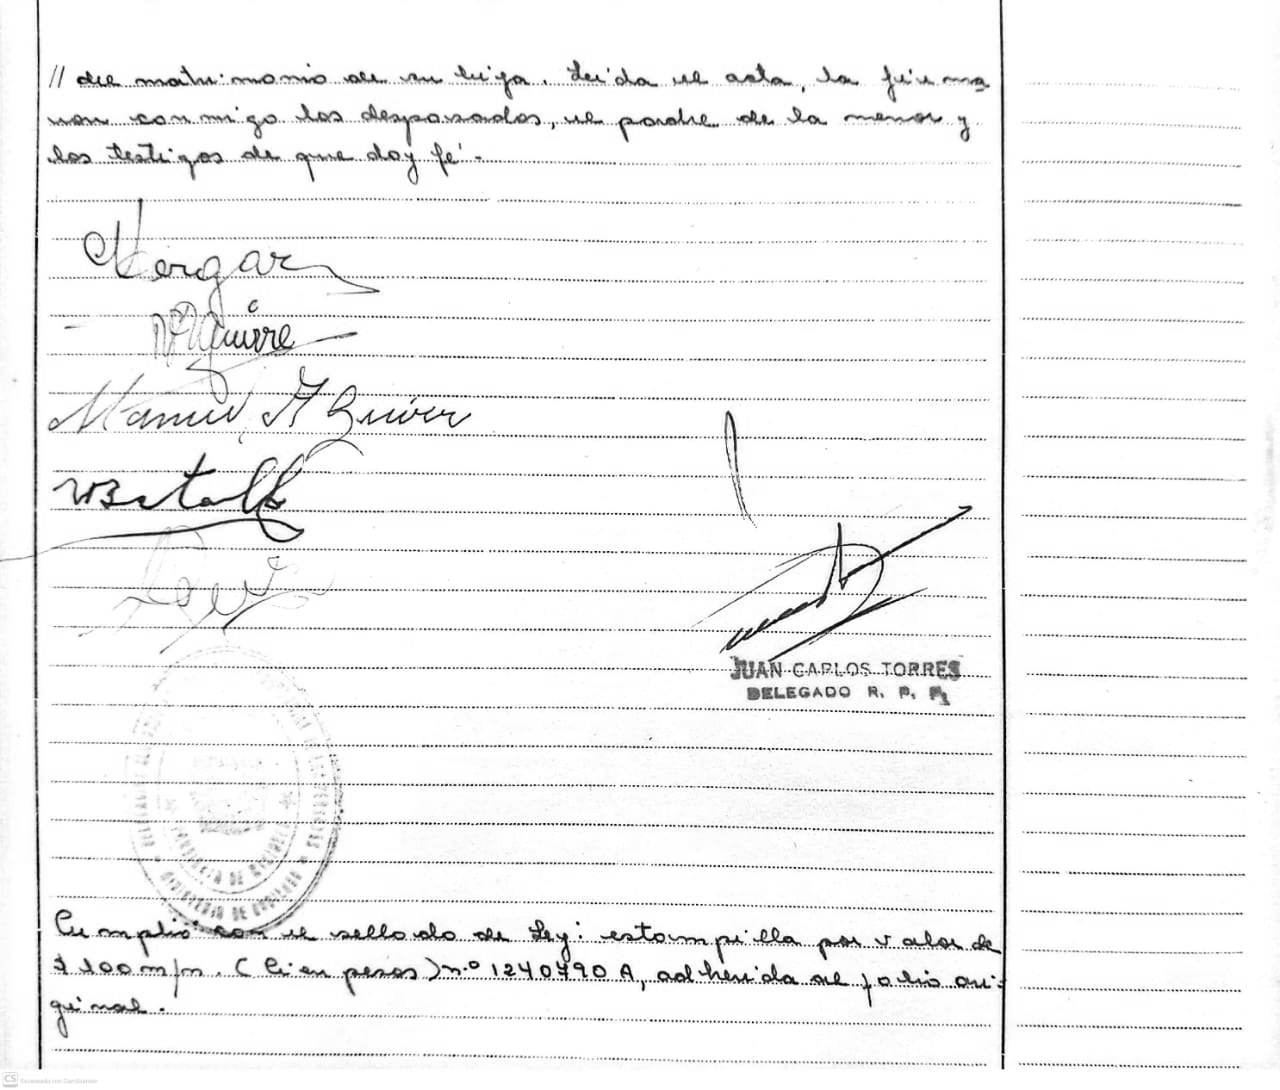 // del matrimonio de su hija. Leída el acta, la firma
ron conmigo los desposados, el padre de la menor y
los testigos de que doy fé.
Vergar
Aguirre
Manuel Aguirre
JUAN CARLOS TORRES
DELEGADO R. P. P.
DE
Cumplió con el sellado de Ley: estampilla por valor de
$ 100 m/n. (Cien pesos) n.º 1240790 A, adherida al folio ori-
ginal.
CS Escaneado con CamScanner